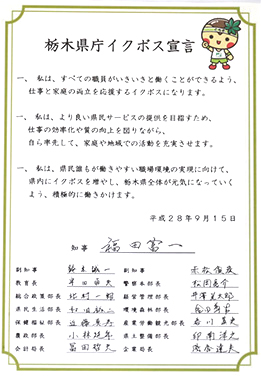 栃木県庁イクボス宣言
一、 私は、すべての職員がいきいきと働くことができるよう、
仕事と家庭の両立を応援するイクボスになります。
一、 私は、より良い県民サービスの提供を目指すため、
仕事の効率化や質の向上を図りながら、
自ら率先して、家庭や地域での活動を充実させます。
一、 私は、県民誰もが働きやすい職場環境の実現に向けて、
県内にイクボスを増やし、栃木県全体が元気になっていく
よう、積極的に働きかけます。
平成28年9月15日
知事 福田富一
副知事 鈴木誠一 副知事
教育長 警察本部長 松岡亮介
総合政策部長 北村一郎 経営管理部長
県民生活部長 環境森林部長
保健福祉部長 近藤真寿 産業労働観光部長
農政部長 小林 県土整備部長 印南洋之
会計局長 冨田哲夫 企業局長